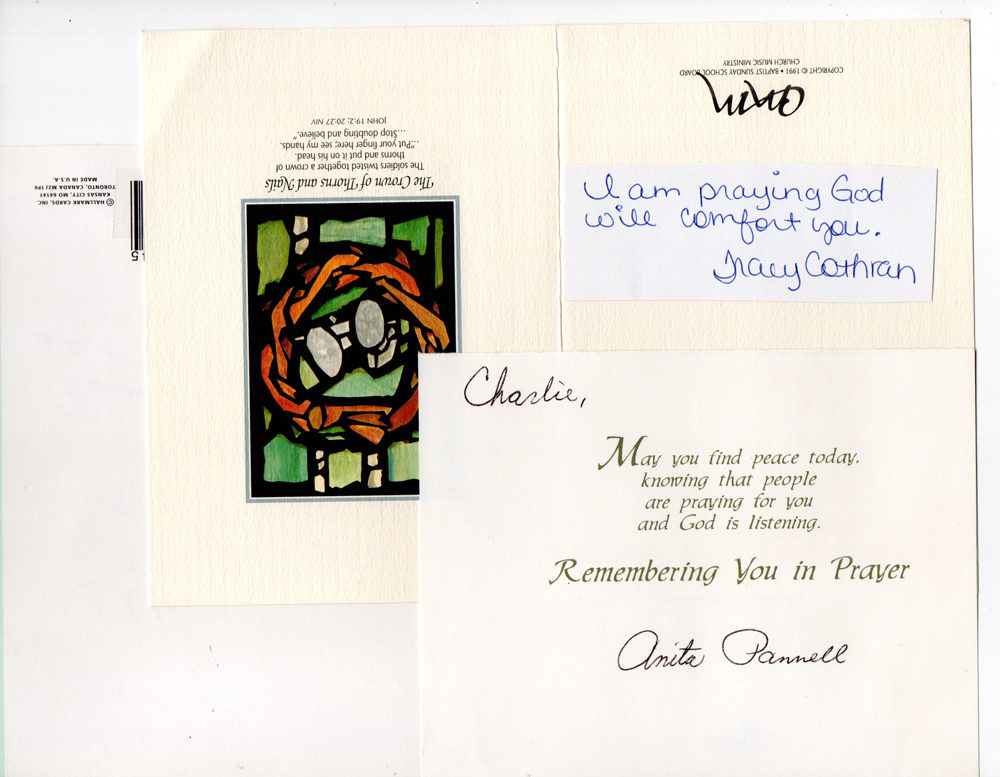 COPYRIGHT © 1991 • BAPTIST SUNDAY SCHOOL BOARD
CHURCH MUSIC MINISTRY
I am praying God
will comfort you.
Tracy Cothran
The Crown of Thorns and Nails
The soldiers twisted together a crown of
thorns and put it on his head.
..."Put your finger here; see my hands.
...Stop doubting and believe."
JOHN 19:2; 20:27 NIV
© HALLMARK CARDS, INC.
KANSAS CITY, MO 64141
TORONTO, CANADA M2J 1P6
MADE IN U.S.A.
Charlie,
May you find peace today,
knowing that people
are praying for you
and God is listening.
Remembering You in Prayer
Anita Pannell